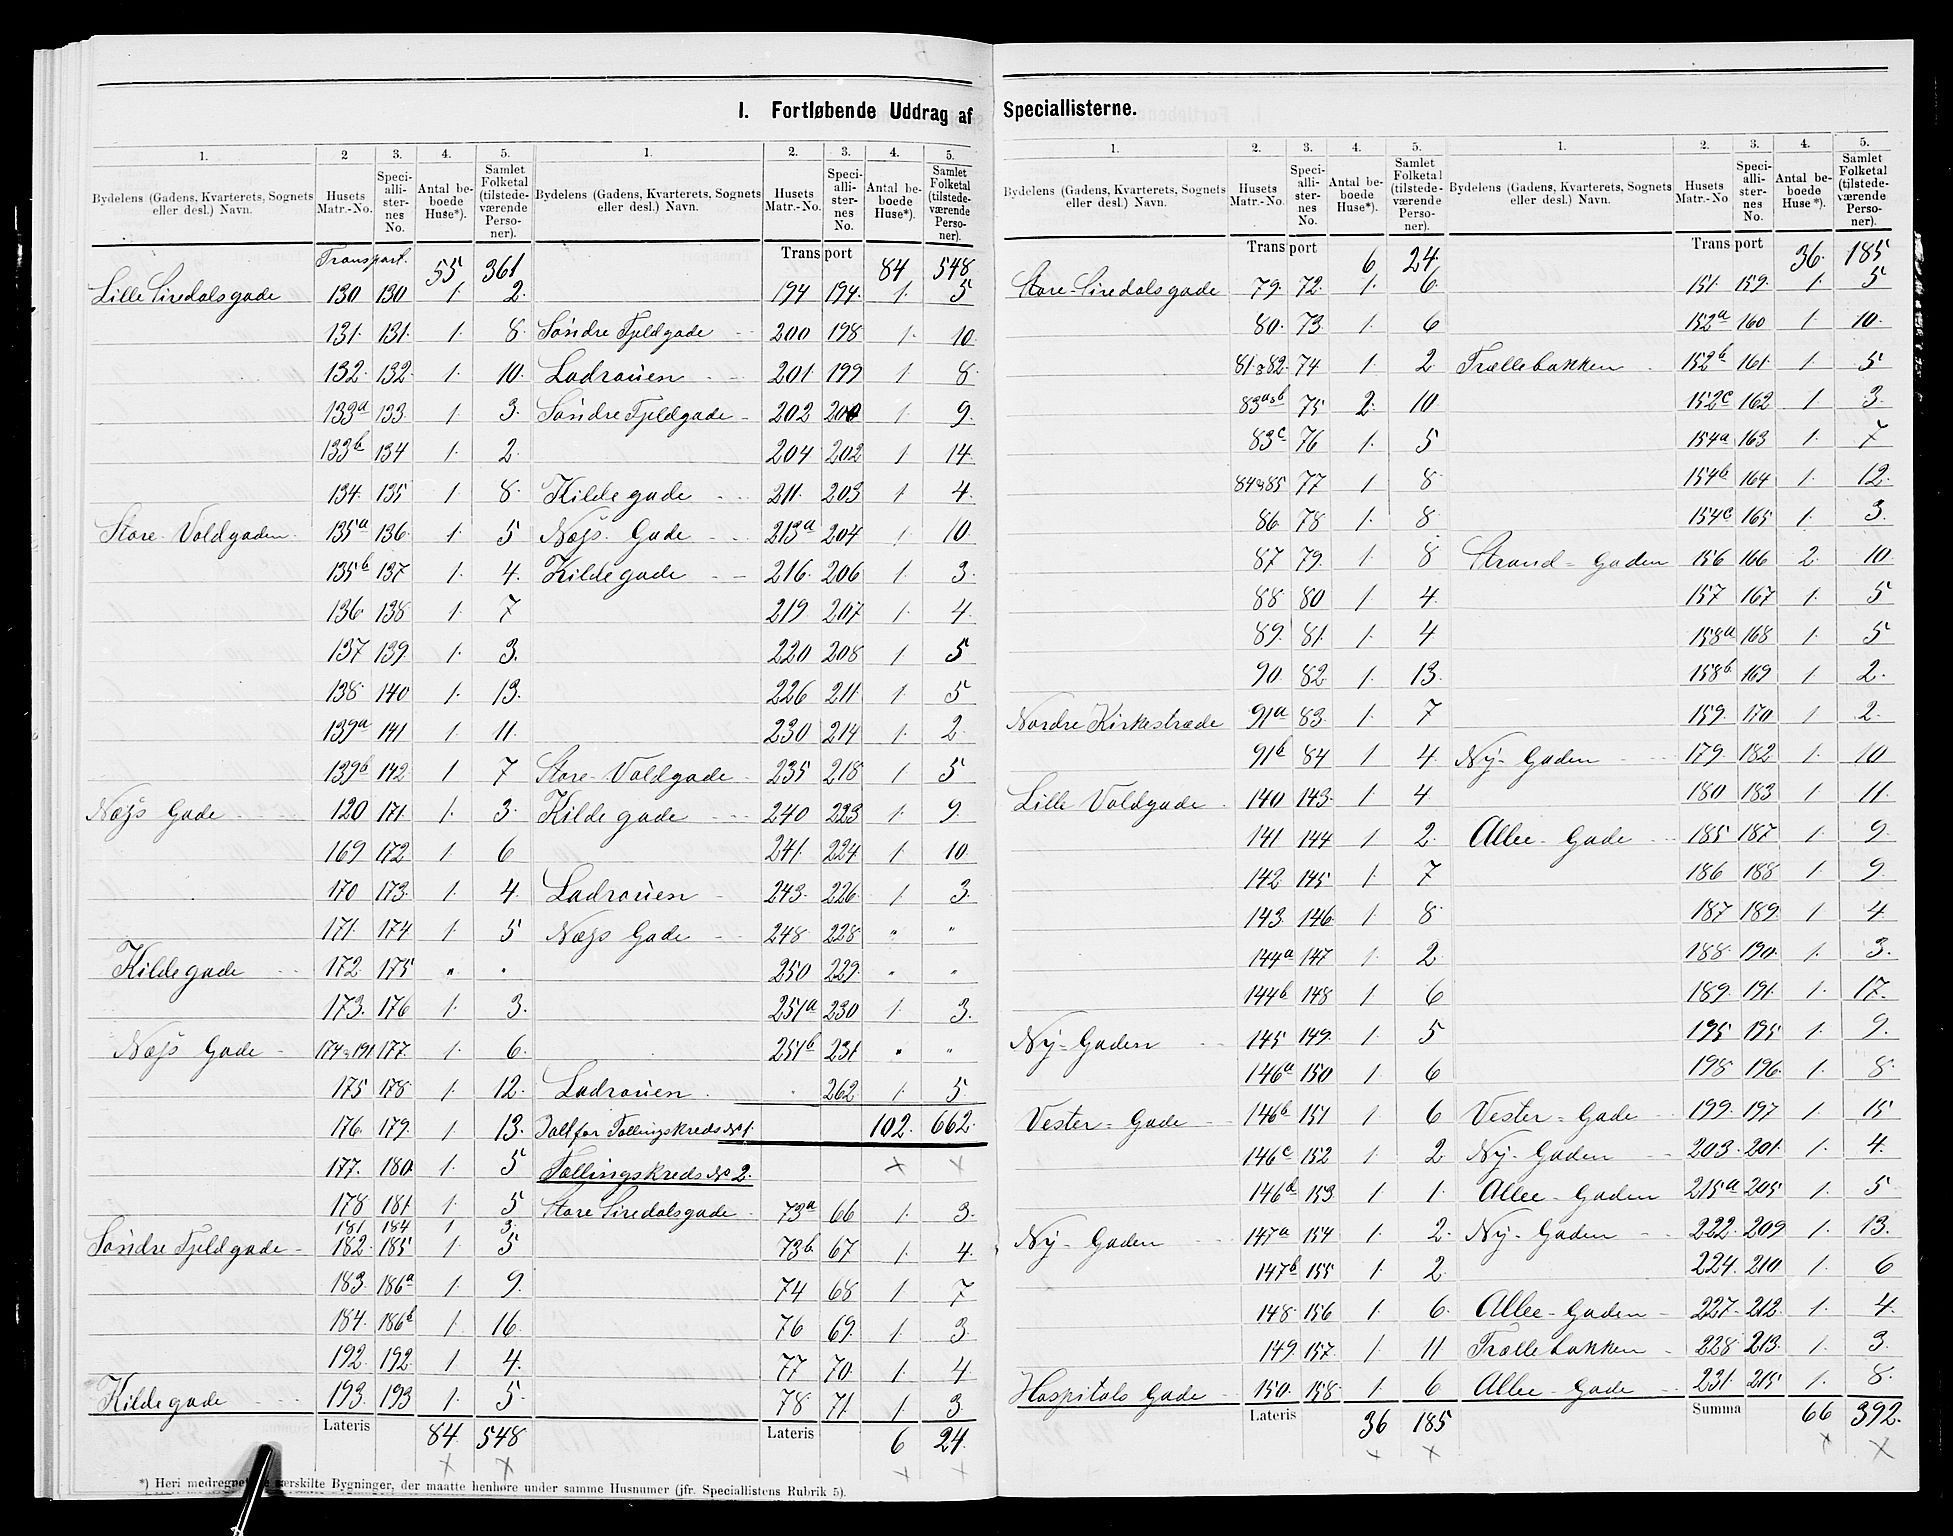 I. Fortløbende Uddrag af Speciallisterne.
1. 2 3. 4. 5. 1. 2. 3. 4. 5.
Bydelens (Gadens, Kvarterets, Sognets eller desl.) Navn. Husets Matr.-No. Speciallisternes No. Antal beboede Huse*). Samlet Folketal (tilstedeværende Personer).
Bydelens (Gadens, Kvarterets, Sognets eller desl.) Navn. Husets Matr.-No. Speciallisternes No. Antal beboede Huse*). Samlet Folketal (tilstedeværende Personer).
Transport. 55 361
Lille Siredalsgade 130 130 1. 2.
131. 131. 1. 8.
132. 132. 1. 10.
133a 133. 1 3.
133b 134 1. 2.
134. 135 1 8.
Store Voldgaden. 135a 136. 1. 5
135b 137 1. 4.
136. 138 1. 7
137 139 1. 3.
138. 140 1. 13.
139a 141 1. 11.
139b 142 1 7
Næss Gade 120 171. 1. 3.
169 172 1 6
170 173. 1. 4
171. 174 1. 5
Kildegade 172. 175 " "
173. 176 1. 3.
Næss Gade 174&191 177. 1. 6.
175 178 1. 12.
176. 179. 1 13.
177. 180 1. 5
178 181. 1. 5
181. 184 1 3.
Søndre Fjeldgade 182. 185 1. 5
183. 186a 1. 9.
184. 186b 1. 16.
192. 192. 1 4.
Kildegade 193. 193 1. 5.
Lateris 84. 548
Transport 84 548
194 194. 1. 5
Søndre Fjeldgade 200 198 1. 10.
Ladrouen 201. 199 1 8.
Søndre Fjeldgade 202 200 1 9.
204 202 1 14.
Kildegade 211. 203 1 4.
Næss Gade 213a 204 1. 10.
Kildegade 216. 206 1. 3.
219 207 1 4.
220 208 1 5
226 211. 1 5
230 214 1. 2.
Store Voldgade 235 218 1 5
Kildegade 240 223 1. 9.
241. 224 1 10.
Ladrouen 243. 226. 1 3.
Næss Gade 248 228 " "
250 229. " "
251a 230 1 3.
251b 231. " "
Ladrouen 262 1. 5.
Ialt for Tællingskreds No 1. 102. 662.
Tællingskreds No 2.
Store Siredalsgade 73a 66 1. 3.
73b 67. 1 4.
74 68 1 7
76 69. 1. 3.
77 70. 1. 4
78 71. 1 3
Lateris 6 24.
*) Heri medregnet særskilte Bygninger, der maatte henhøre under samme Husnumer (jfr. Speciallistens Rubrik 5).
1. 2. 3. 4. 5. 1. 2. 3. 4. 5.
Bydelens (Gadens, Kvarterets, Sognets eller desl.) Navn. Husets Matr.-No. Speciallisternes No. Antal beboede Huse*). Samlet Folketal (tilstedeværende Personer).
Bydelens (Gadens, Kvarterets, Sognets eller desl.) Navn. Husets Matr.-No Speciallisternes No. Antal beboede Huse*). Samlet Folketal (tilstedeværende Personer).
Transport 6 24.
Store Siredalsgade 79. 72. 1. 6.
80. 73. 1. 6
81&82 74 1. 2
83a&b 75 2. 10
83c 76 1. 5
84&85 77 1 8.
86. 78 1. 8
87 79. 1. 8
88 80 1 4.
89. 81. 1. 4
90. 82. 1. 13.
Nordre Kirkestræde 91a 83. 1. 7
91b 84 1 4
Lille Voldgade 140 143. 1 4.
141 144 1 2.
142 145 1. 7
143. 146. 1 8
144a 147 1 2.
144b 148 1. 6
Ny-Gaden 145 149. 1. 5
146a 150 1. 6
Vester-Gade 146b 151 1 6
146c 152 1 2
146d 153. 1 1.
Ny-Gaden 147a 154 1. 2.
147b 155 1. 2
148. 156 1. 6.
149. 157. 1 11
Hospitals Gade 150. 158. 1. 6
Lateris 36 185
Transport 36. 185
151. 159. 1. 5
152a 160 1. 10.
Trællebakken 152b 161. 1 5
152c 162 1 3.
154a 163 1. 7
154b 164 1. 12.
154c 165 1. 3.
Strand-Gaden 156 166 2. 10.
157 167 1. 5
158a 168 1. 5
158b 169 1 2.
159. 170 1 2.
Ny-Gaden 179. 182. 1. 10
180 183 1 11.
Allee-Gade 185 187 1. 9
186 188 1 9.
187 189. 1 4
188. 190. 1. 3.
189. 191. 1. 17.
195 195 1. 9.
198 196. 1. 8.
Vester-Gade 199. 197 1. 15
Ny-Gaden 203. 201. 1. 4.
Allee-Gaden 215a 205 1. 5
Ny-Gaden 222. 209 1. 13.
224. 210. 1. 6
Allee-Gaden 227. 212. 1. 4.
Trællebakken 228 213. 1. 3.
Allee-Gade 231. 215 1. 8.
Summa 66 392.